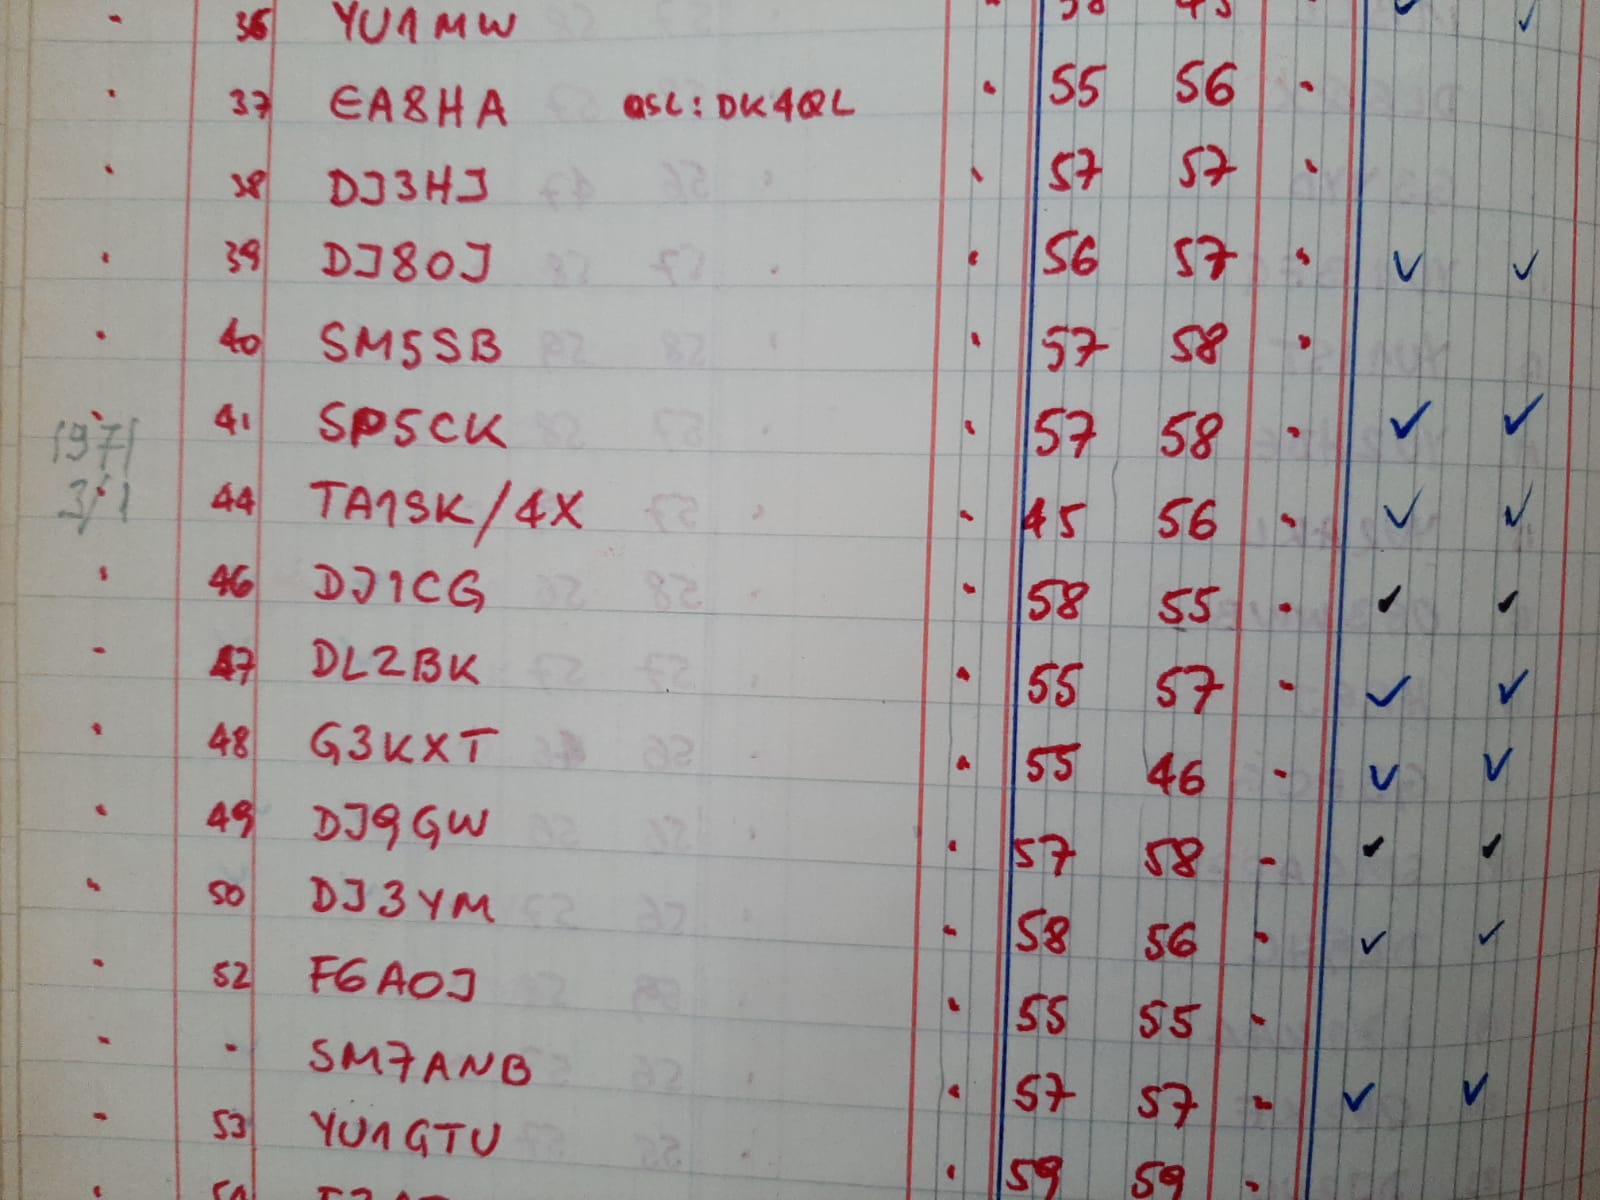 36 YU1MW
37 EA8HA QSL: DK4QL 55 56
38 DJ3HJ 57 57
39 DJ8OJ 56 57 ✓ ✓
40 SM5SB 57 58
41 SP5CK 57 58 ✓ ✓
1971
3/1 44 TA1SK/4X 45 56 ✓ ✓
46 DJ1CG 58 55 ✓ ✓
47 DL2BK 55 57 ✓ ✓
48 G3KXT 55 46 ✓ ✓
49 DJ9GW 57 58 ✓ ✓
50 DJ3YM 58 56 ✓ ✓
52 F6AOJ 55 55
SM7ANB 57 57 ✓ ✓
53 YU1GTU 59 59